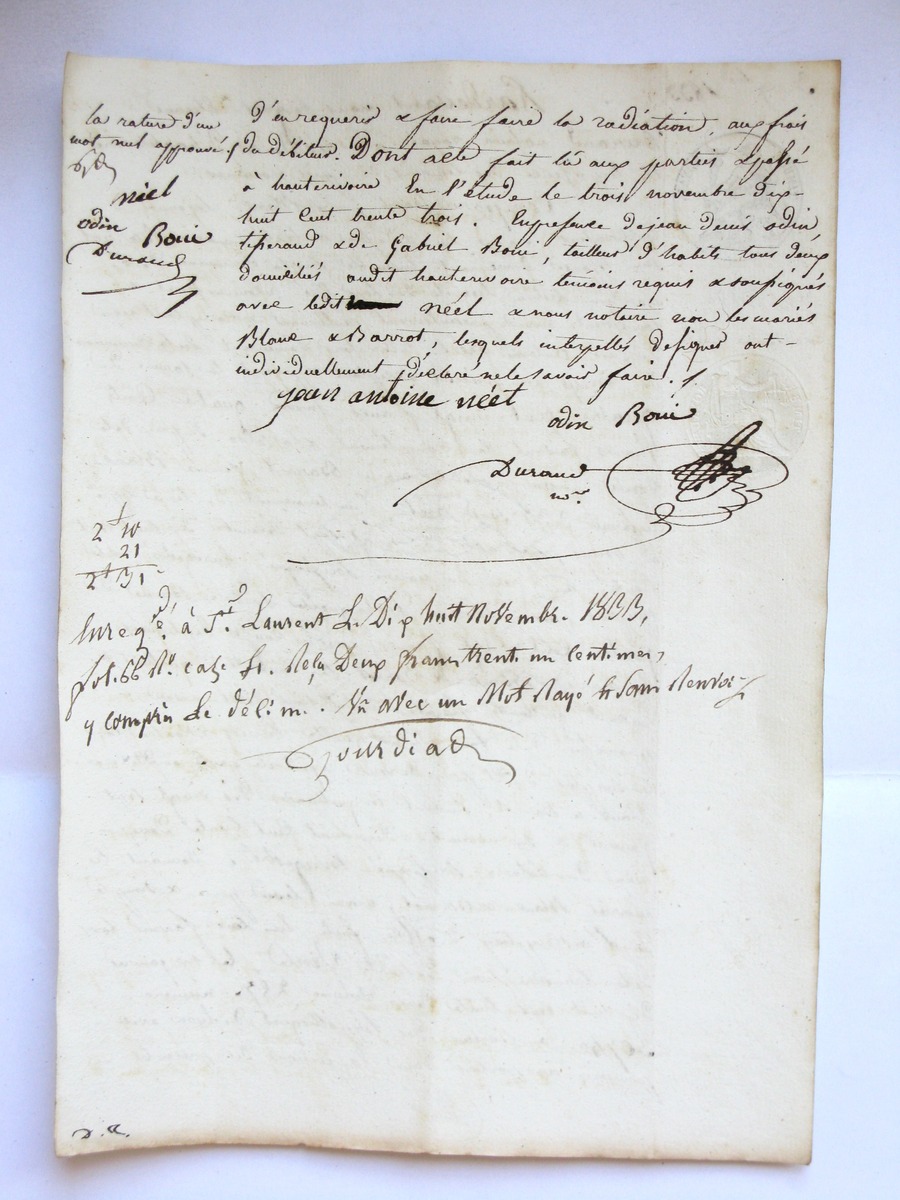 la rature d'un
mot nul approuvé
néel
odin Boui
Durand
d'en requerir & faire faire la radiation, aux frais
du débiteur. Dont acte fait lu aux parties & passé
à hauterivoire En l'étude le trois novembre dix-
huit cent trente trois. En presence de jean denis odin
tisserand & de Gabriel Boui, tailleur d'habits tous deux
domiciliés audit hauterivoire temoins requis & soussignés
avec ledit néel & nous notaire non les mariés
Blanc & Barrot, lesquels interpellés de signer ont
individuellement déclaré ne le savoir faire ./.
jean antoine néel
odin Boui
Durand
nre
2f 10
21
2f 31
Enregé à St. Laurent Le Dix huit Novembre 1833,
fol. 66 Ro. case Reçu Deux francs trente un centimes,
y compris Le décime. Un avec un Mot Rayé & sans Renvoi
D. A.